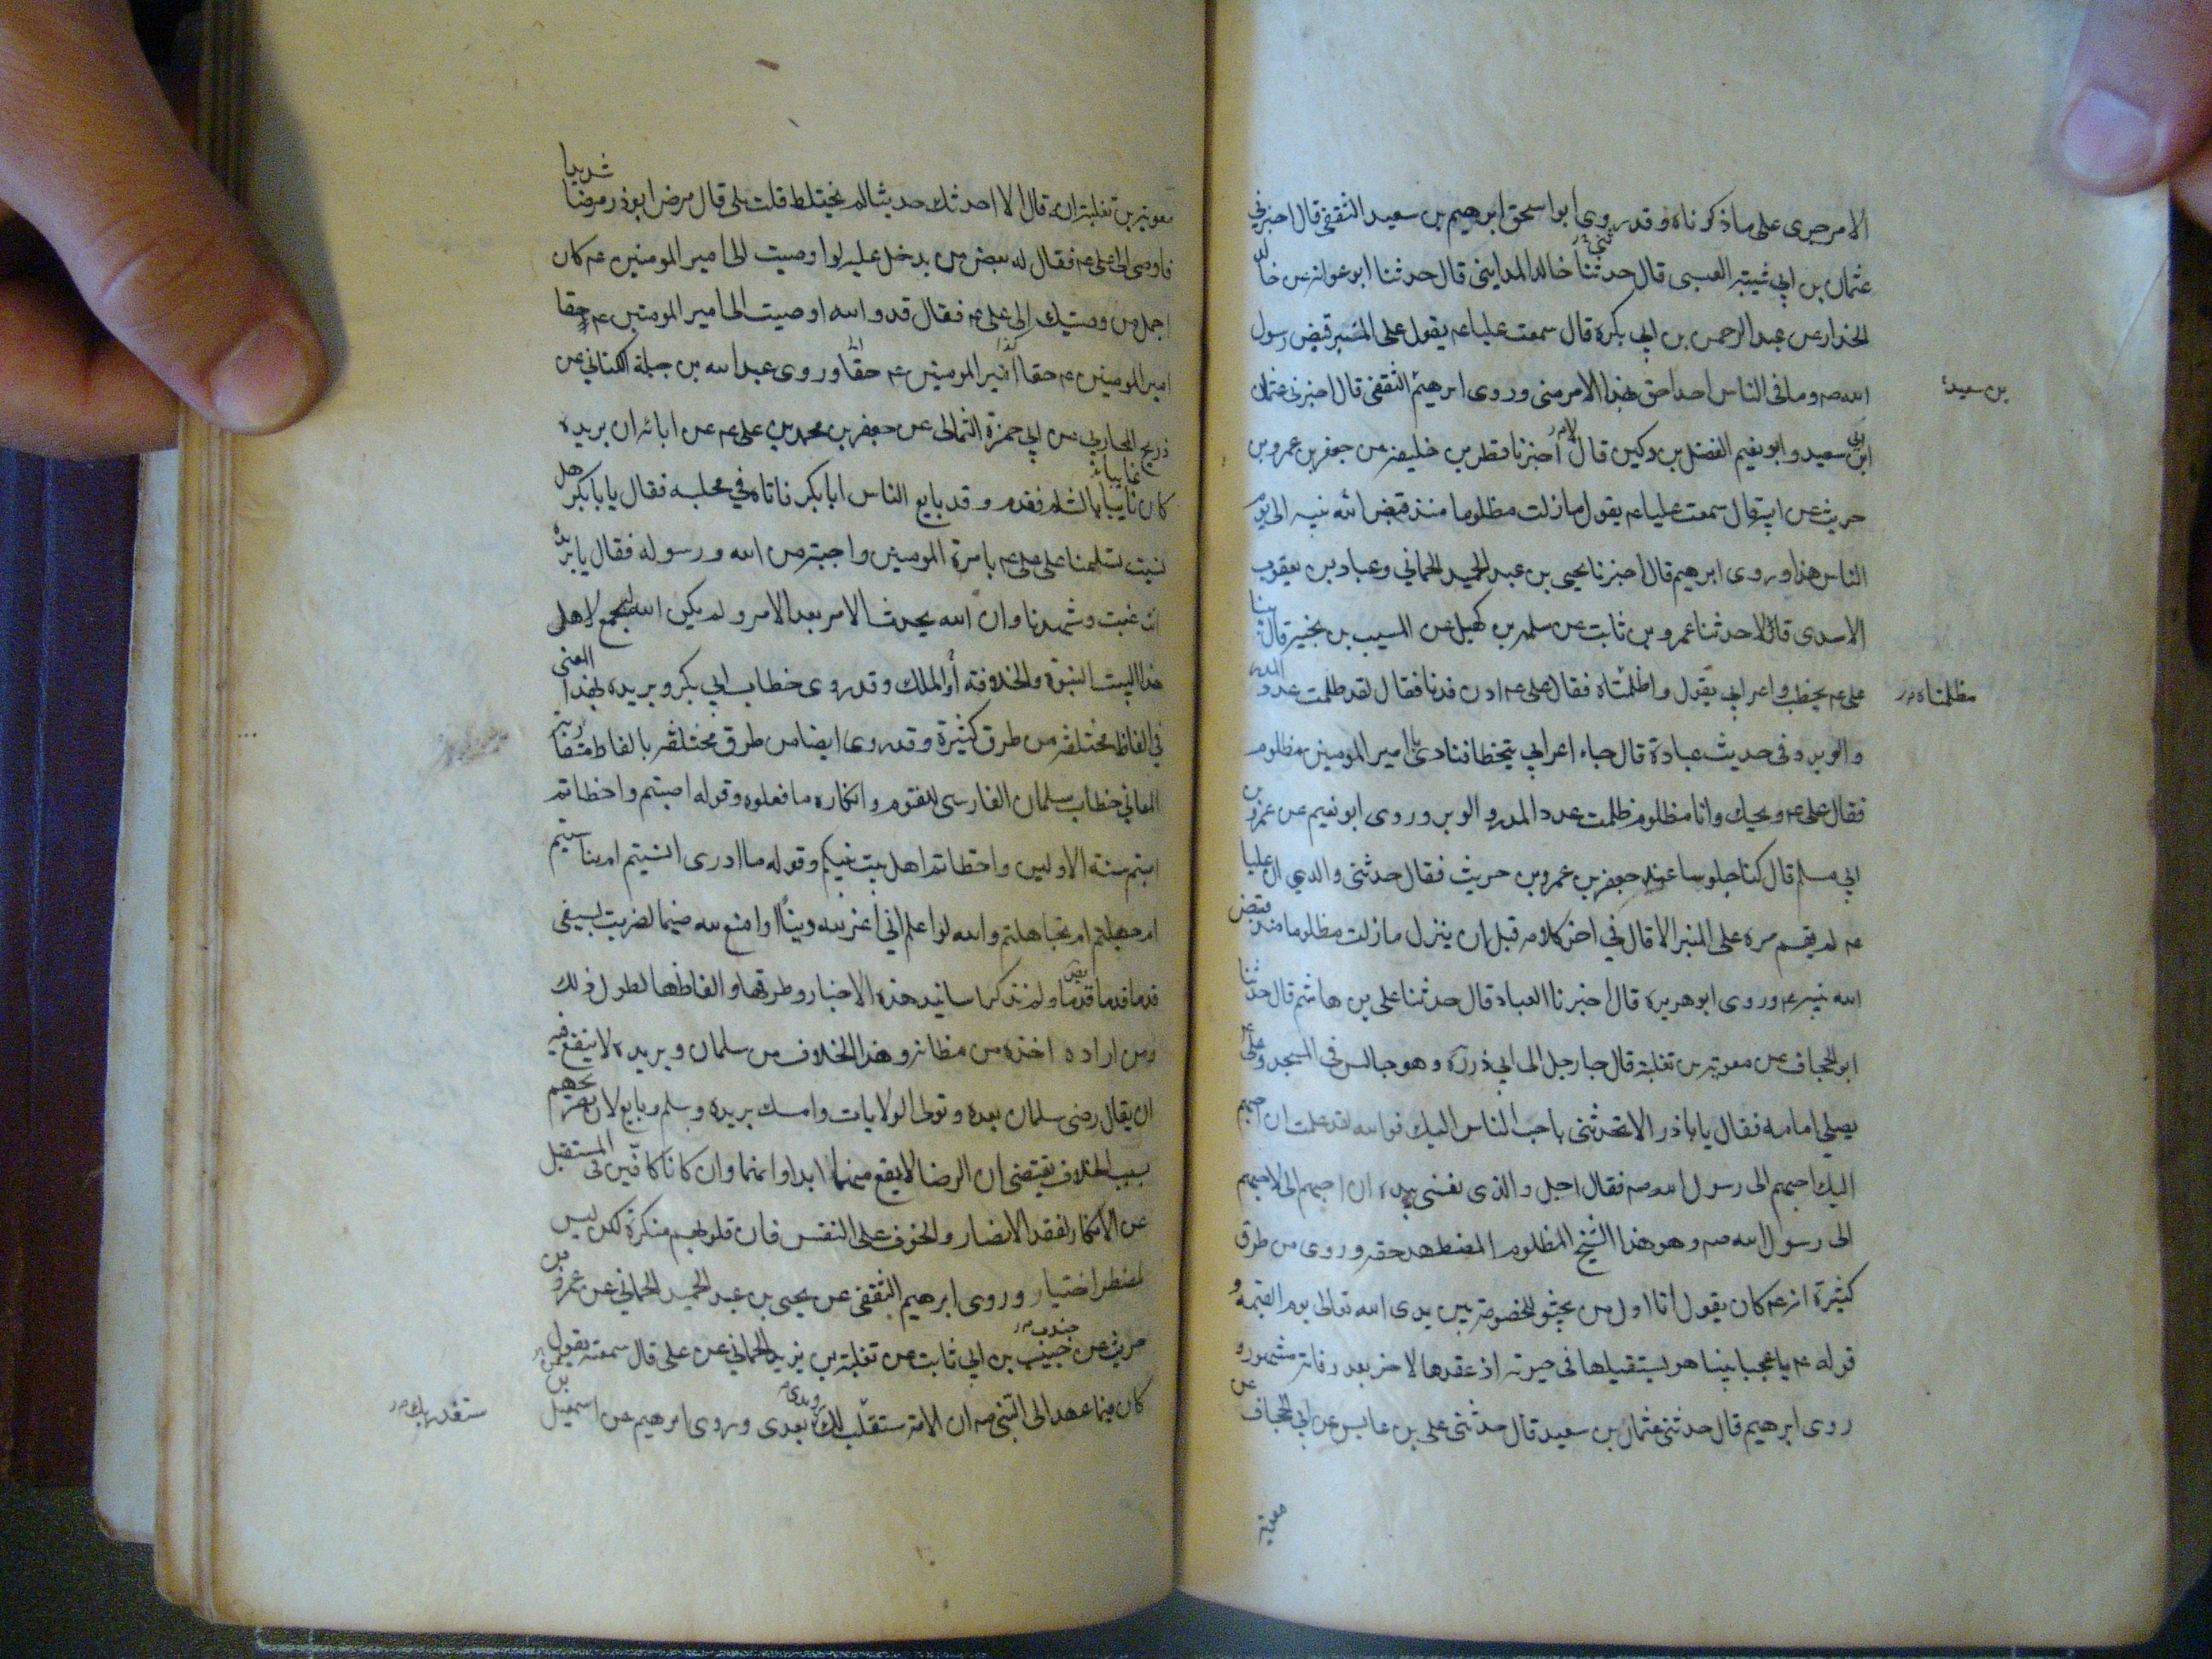 الامر جرى على ما ذكرناه وقد روى ابو اسحق ابرهيم بن سعيد الثقفي قال اخبرني
عثمان بن ابي شيبة العبسى قال حدثنا خالد المدايني قال حدثنا ابو عوانه عن خالد
الحذاء عن عبد الرحمن بن ابي بكرة قال سمعت عليا عم يقول على المنبر قبض رسول
الله صه وما فى الناس احد احق بهذا الامر منى وروى ابرهيم الثقفى قال اخبرنى عثمان
بن سعيد
ابن ابى سعيد وابو نعيم الفضل بن دكين قالا اخبرنا فطر بن خليفه عن جعفر بن عمرو بن
حريث عن ابيه قال سمعت عليا عم يقول ما زلت مظلوما منذ قبض الله نبيه الى يوم
الناس هذا وروى ابرهيم قال اخبرنا يحيى بن عبد الحميد الحماني وعباد بن يعقوب
الاسدى قالا حدثنا عمرو بن ثابت عن سلمه بن كهيل عن المسيب بن نجبة قال بينا
على عم يخطب واعرابي يقول وامظلمتاه فقال على عم ادن فدنا فقال لقد ظلمت عدد المدر
مظلمتاه
والوبر وفى حديث عبادة قال جاء اعرابي يتخطا فنادى يا امير المومنين مظلوم
فقال على عم ويحك وانا مظلوم ظلمت عدد المدر والوبر وروى ابو نعيم عن عمرو بن
ابي مسلم قال كنا جلوسا عند جعفر بن عمرو بن حريث فقال حدثنى والدي ان عليا
عم لم يقم مره على المنبر الا قال في اخر كلامه قبل ان ينزل ما زلت مظلوما منذ قبض
الله نبيه عم وروى ابو هريره قال اخبرنا العباد قال حدثنا على بن هاشم قال حدثنا
ابو الجحاف عن معوية بن ثعلبة قال جا رجل الى ابي ذر ره وهو جالس في المسجد وعلى عم
يصلي امامه فقال يا باذر الا تحدثنى باحب الناس اليك فوالله لقد علمت ان احبهم
اليك احبهم الى رسول الله صه فقال اجل والذى نفسى بيده ان احبهم الى لاحبهم
الى رسول الله صه وهو هذا الشيخ المظلوم المضطهد حقه وروى من طرق
كثيرة انه عم كان يقول انا اول من يجثو للخصومة بين يدى الله تعالى يوم القيمة و
قوله عم يا عجبا بينا هو يستقيلها فى حيوته اذ عقدها لاخر بعد وفاته مشهور و
روى ابرهيم قال حدثنى عثمان بن سعيد قال حدثنى على بن عابس عن ابي الجحاف عن
معوية
معوية بن ثعلبة انه قال الا احدثك حديثا لم يختلط قلت بلى قال مرض ابوذر مرضا شديدا
فاوصى الى على عم فقال له بعض من يدخل عليه لو اوصيت الى امير المومنين عم كان
اجمل من وصيتك الى على عم فقال قد والله اوصيت الى امير المومنين عم حقا
امير المومنين عم حقا امير المومنين عم حقا وروى عبد الله بن جبلة الكناني عن
ذريح المحاربي عن ابي حمزة الثمالى عن جعفر بن محمد بن على عم عن ابائه ان بريده
كان غايبا بالشام فقدم وقد بايع الناس ابا بكر فاتاه في مجلسه فقال يا با بكر هل
نسيت تسليمنا على على عم بامرة المومنين واجبة من الله ورسوله فقال يا بريده
انك غبت وشهدنا وان الله يحدث الامر بعد الامر ولم يكن الله ليجمع لاهل
هذا البيت النبوة والخلافة او الملك وقد روى خطاب ابي بكر وبريده بهذا المعنى
في الفاظ مختلفه من طرق كثيرة وقد روى ايضا من طرق مختلفه بالفاظ متقاربة
المعاني خطاب سلمان الفارسى للقوم وانكاره ما فعلوه وقوله اصبتم واخطاتم
اصبتم سنة الاولين واخطاتم اهل بيت نبيكم وقوله ما ادرى انسيتم ام تناسيتم
ام جهلتم ام تجاهلتم والله لو اعلم انى اعز لله دينا او امنع لله ضيما لضربت بسيفى
قدما قدما ولم نذكر اسانيد هذه الاخبار وطرقها والفاظها لطول ذلك
ومن اراده اخذه من مظانه وهذا الخلاف من سلمان وبريده لا ينفع فيه
ان يقال رضى سلمان بعده وتولى الولايات وامسك بريده وسلم وبايع لان تصريحهم
بسبب الخلاف يقتضى ان الرضا لا يقع منهما ابدا وانهما وان كانا كافين فى المستقبل
عن الانكار لفقد الانصار والخوف على النفس فان قلوبهم منكرة لكن ليس
لمضطر اختيار وروى ابرهيم الثقفى عن يحيى بن عبد الحميد الحماني عن عمرو بن
حريث عن حبيب بن ابي ثابت عن ثعلبة بن يزيد الحماني عن على قال سمعته يقول
كان فيما عهد الى النبي صه ان الامة ستقلب لك بعدى وروى ابرهيم عن اسمعيل بن
ستغدر بك